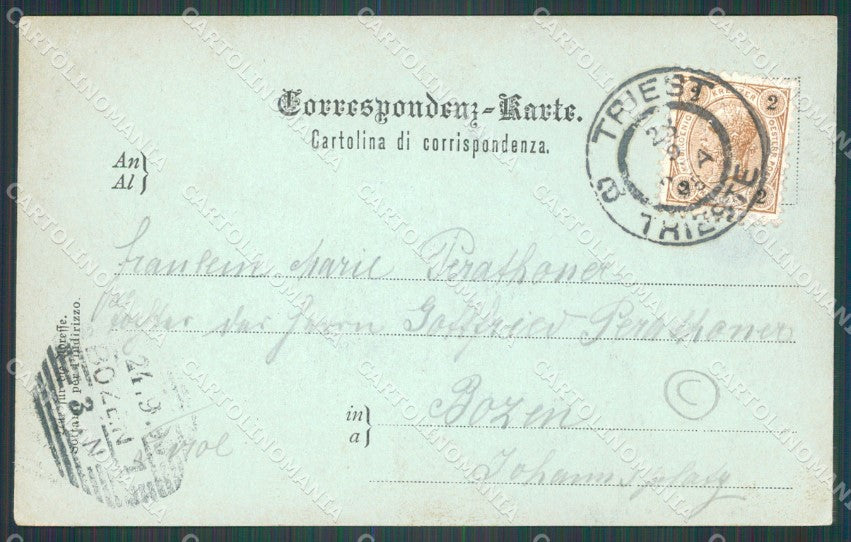 Correspondenz-Karte.
Cartolina di corrispondenza.
An
Al
TRIEST
TRIESTE
2
2
2
Fräulein Marie Perathoner
Tochter des Herrn Gottfried Perathoner
in
a
Bozen
Tirol
Johannsplatz
Nur für die Adresse.
Soltanto per l'indirizzo.
BOZEN
24.9
3
©
CARTOLINOMANIA